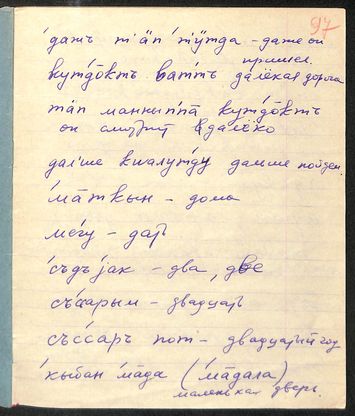 97
′дажъ тап′ тӱтда - даже он
пришел.
кут′до̄ктъ ват̄тъ далёкая дорога
тап манныт̄па кут′до̄ктъ
он смотрит далёко
дал′ше квалут̄ду дальше пойдем
′ма̄ткын - дома
ме́гу - дать
съ́дъ jак - два, две
съ́сарым - двадцать
със̄саръ пот - двадцатый год
′кыбан ′ма̄да (′ма̄дала)
маленькая дверь.